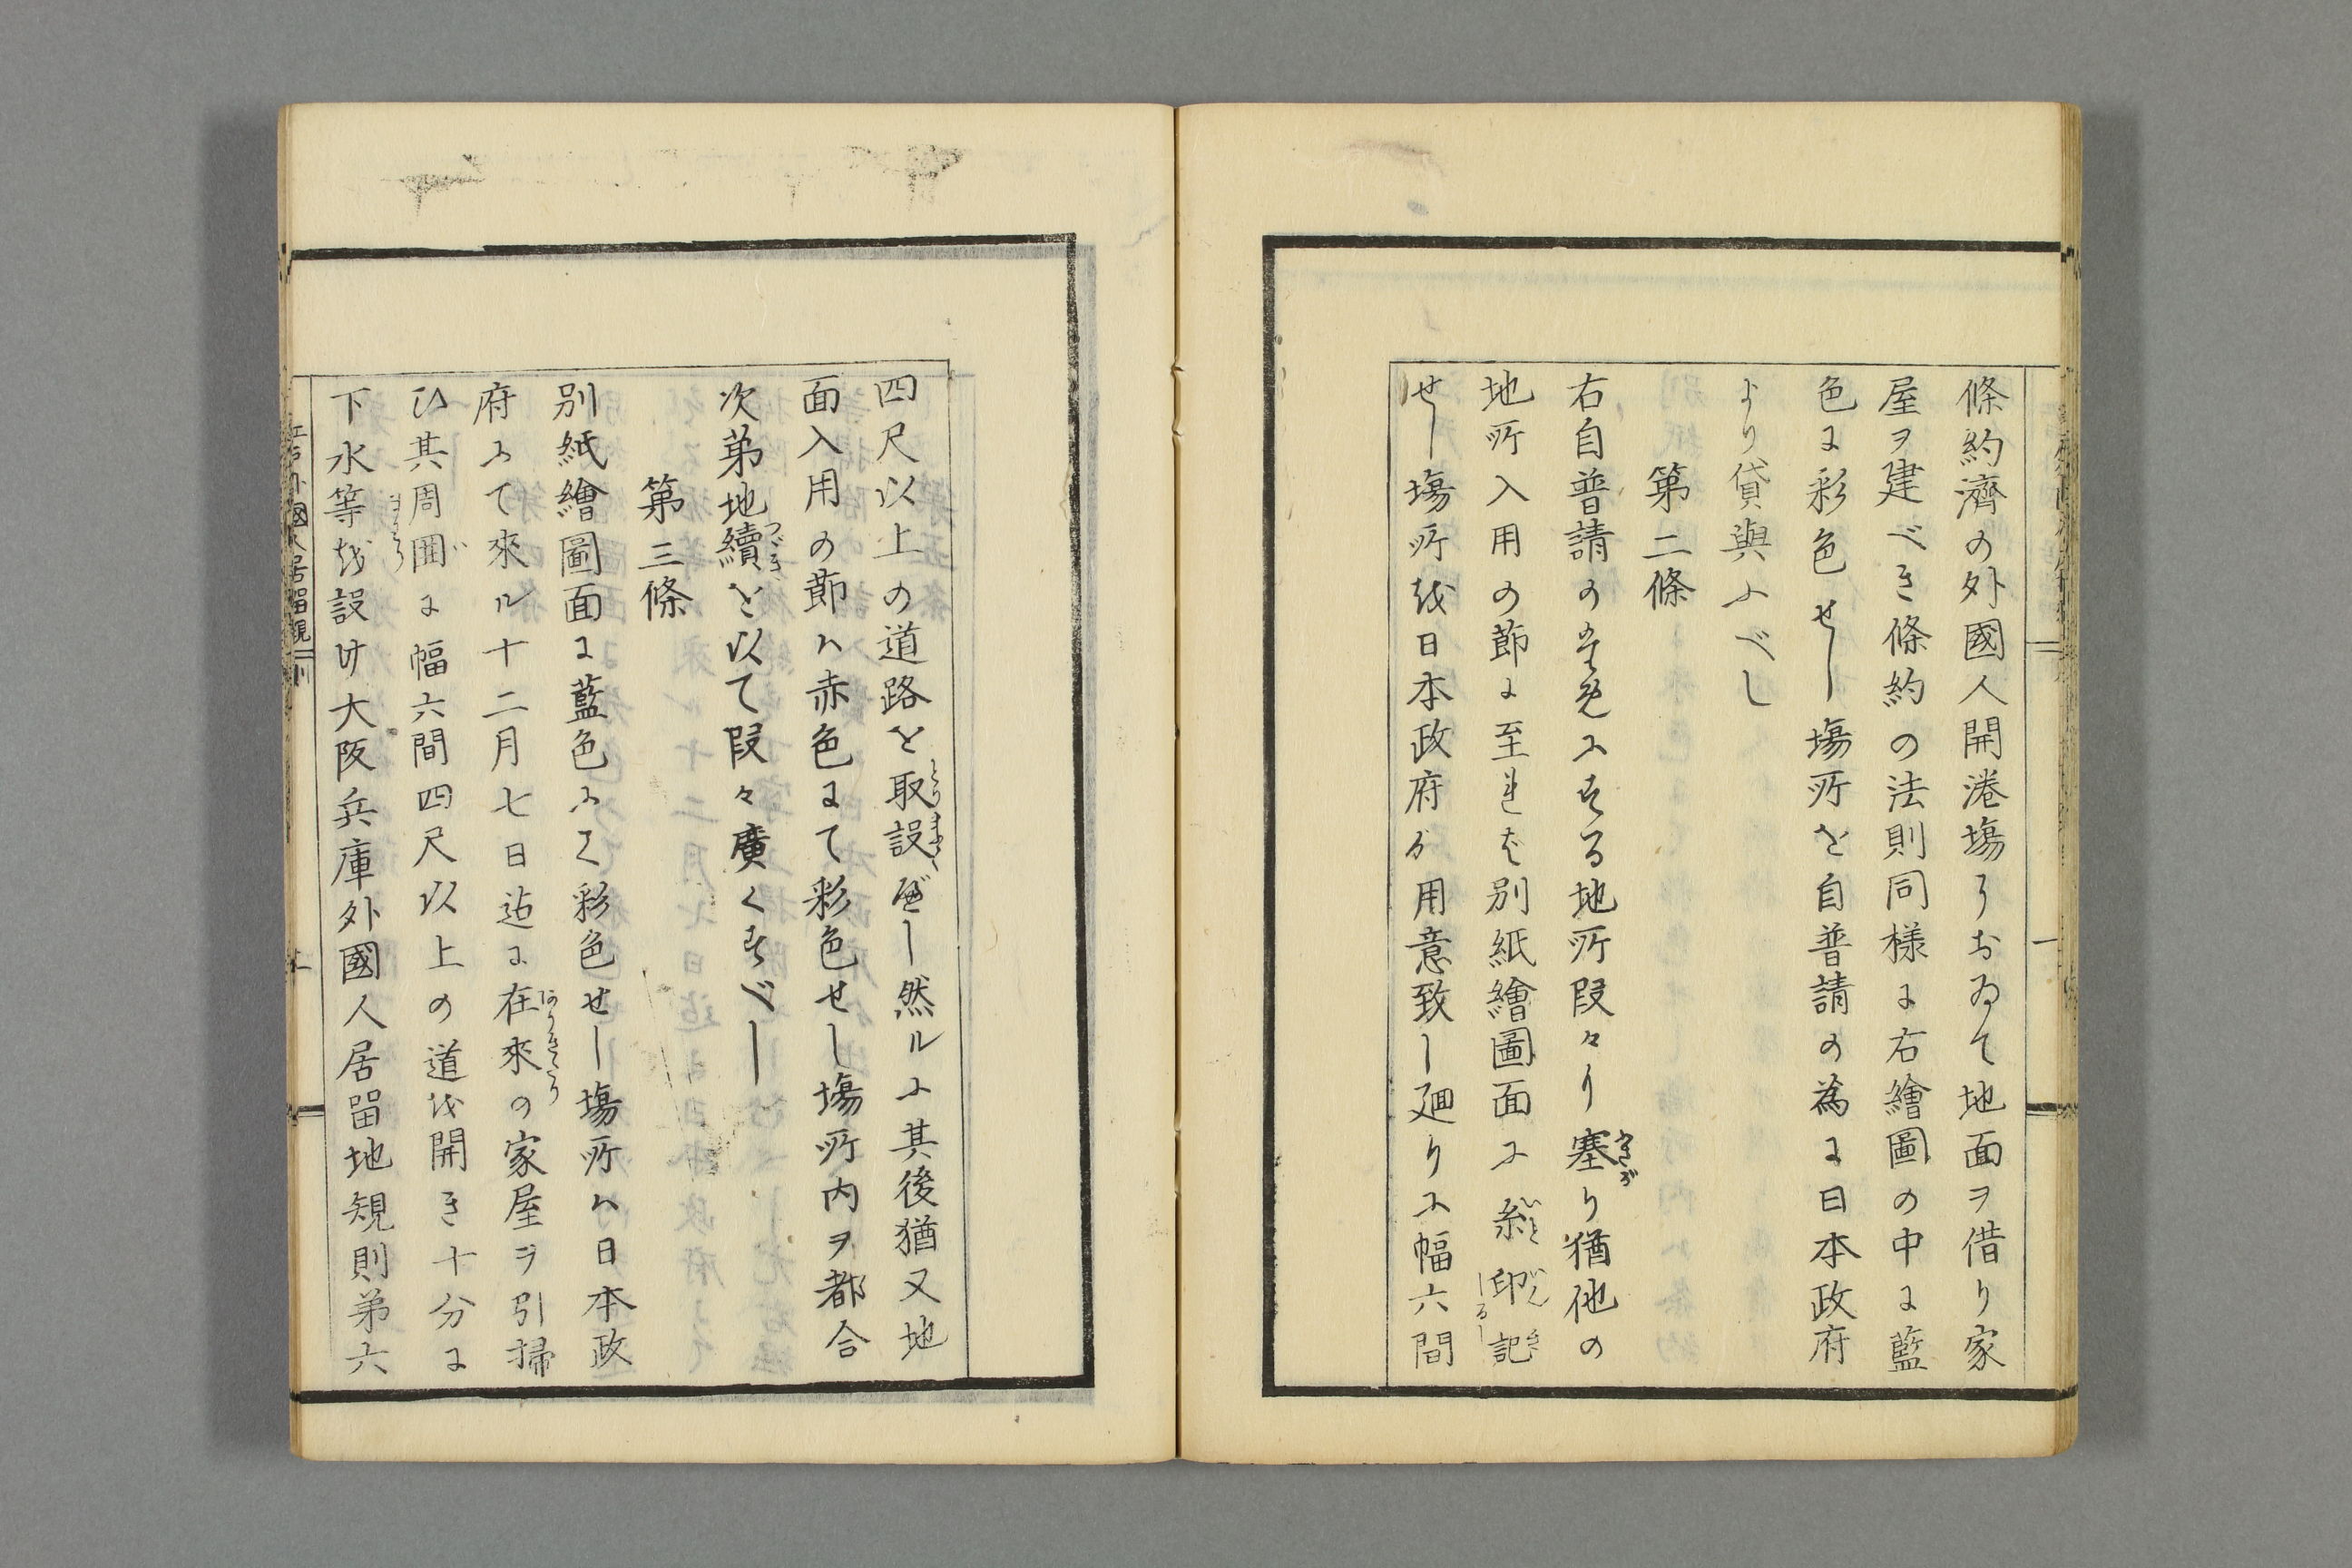 條約濟の外國人開港塲ニおゐて地面ヲ借り家
屋ヲ建べき條約の法則同樣に右繪圖の中に藍
色に彩色せし塲所を自普請の為に日本政府
より貸與ふべし
第二條
右自普請のためにする地所段々り塞り猶他の
地所入用の節に至れば別紙繪圖面に糸印記
せし塲所を日本政府が用意致し廻りに幅六間
四尺以上の道路を取設べし然ルに其後猶又地
面入用の節ハ赤色にて彩色せし塲所内ヲ都合
次弟地續を以て段々廣くすべし
第三條
別紙繪圖面に藍色にて彩色せし塲所ハ日本政
府にて來ル十二月七日迄に在來の家屋ヲ引掃
ひ其周囲に幅六間四尺以上の道を開き十分に
下水等を設け大阪兵庫外國人居留地規則弟六
江戸外國人居留規